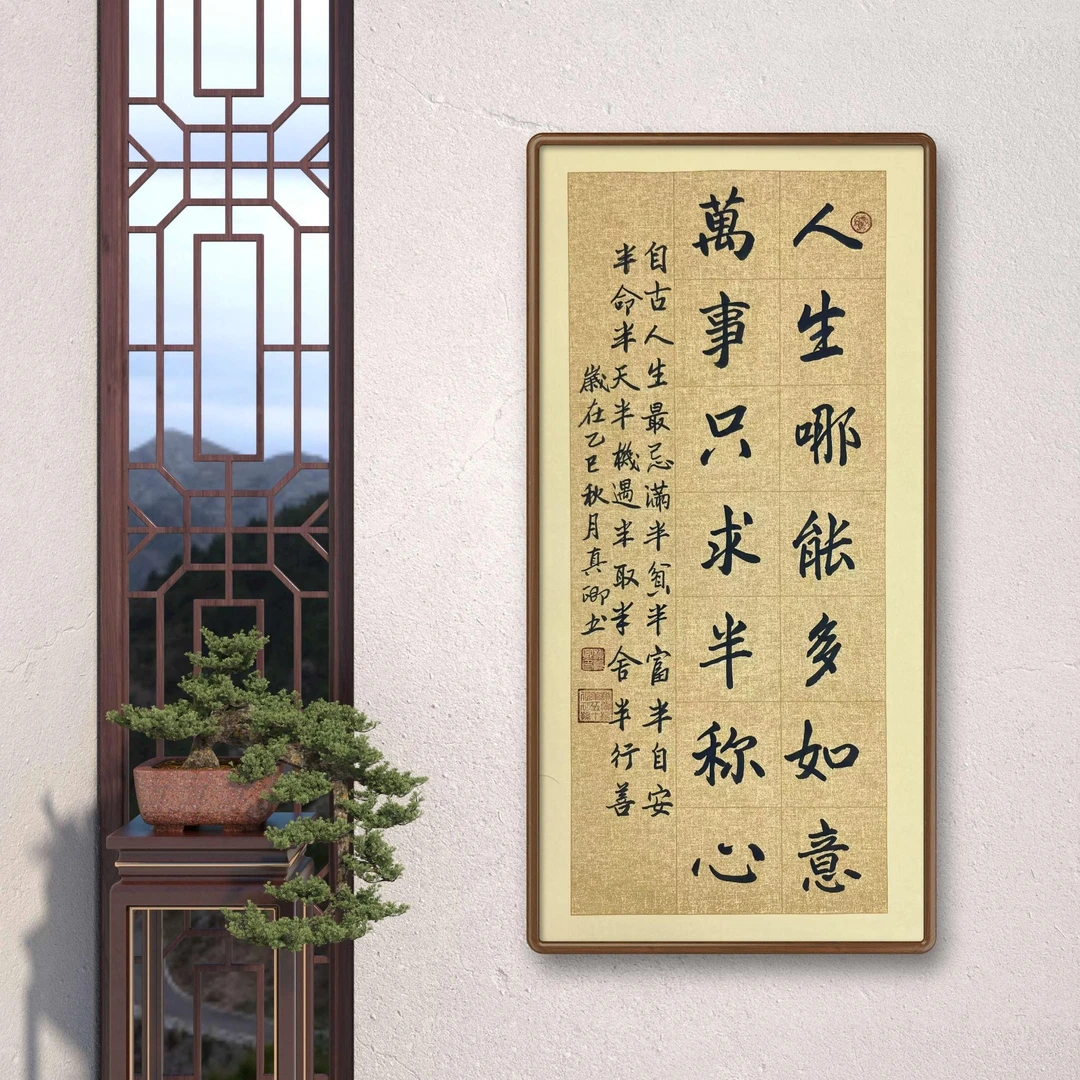 人生哪能多如意
萬事只求半称心
自古人生最忌滿半貧半富半自安
半命半天半機遇半取半舍半行善
嵗在乙巳秋月真卿书